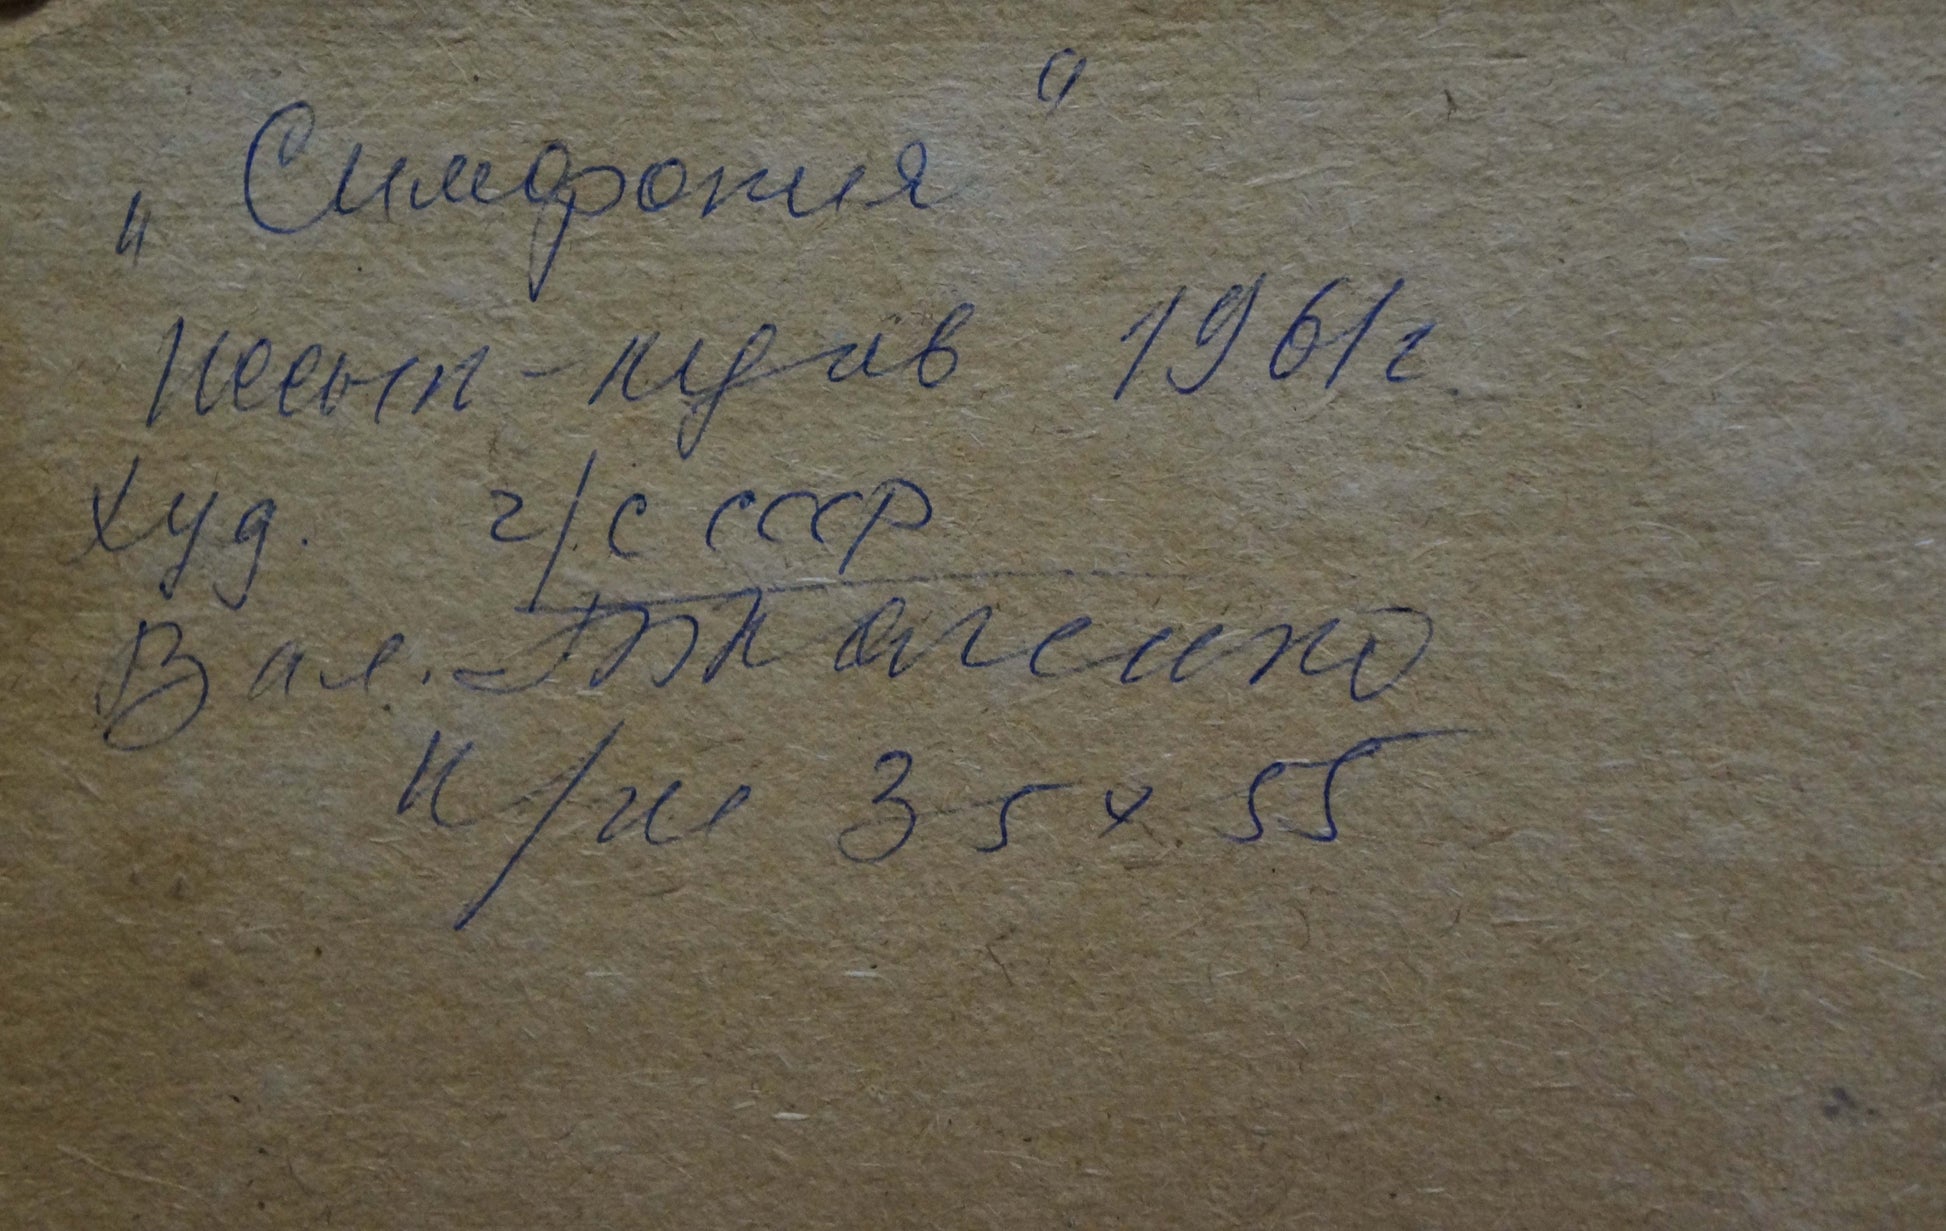 „Симфония"
1961г.
худ. ч/с ссср
Вал. Ткаченко
к/м 35 х 55